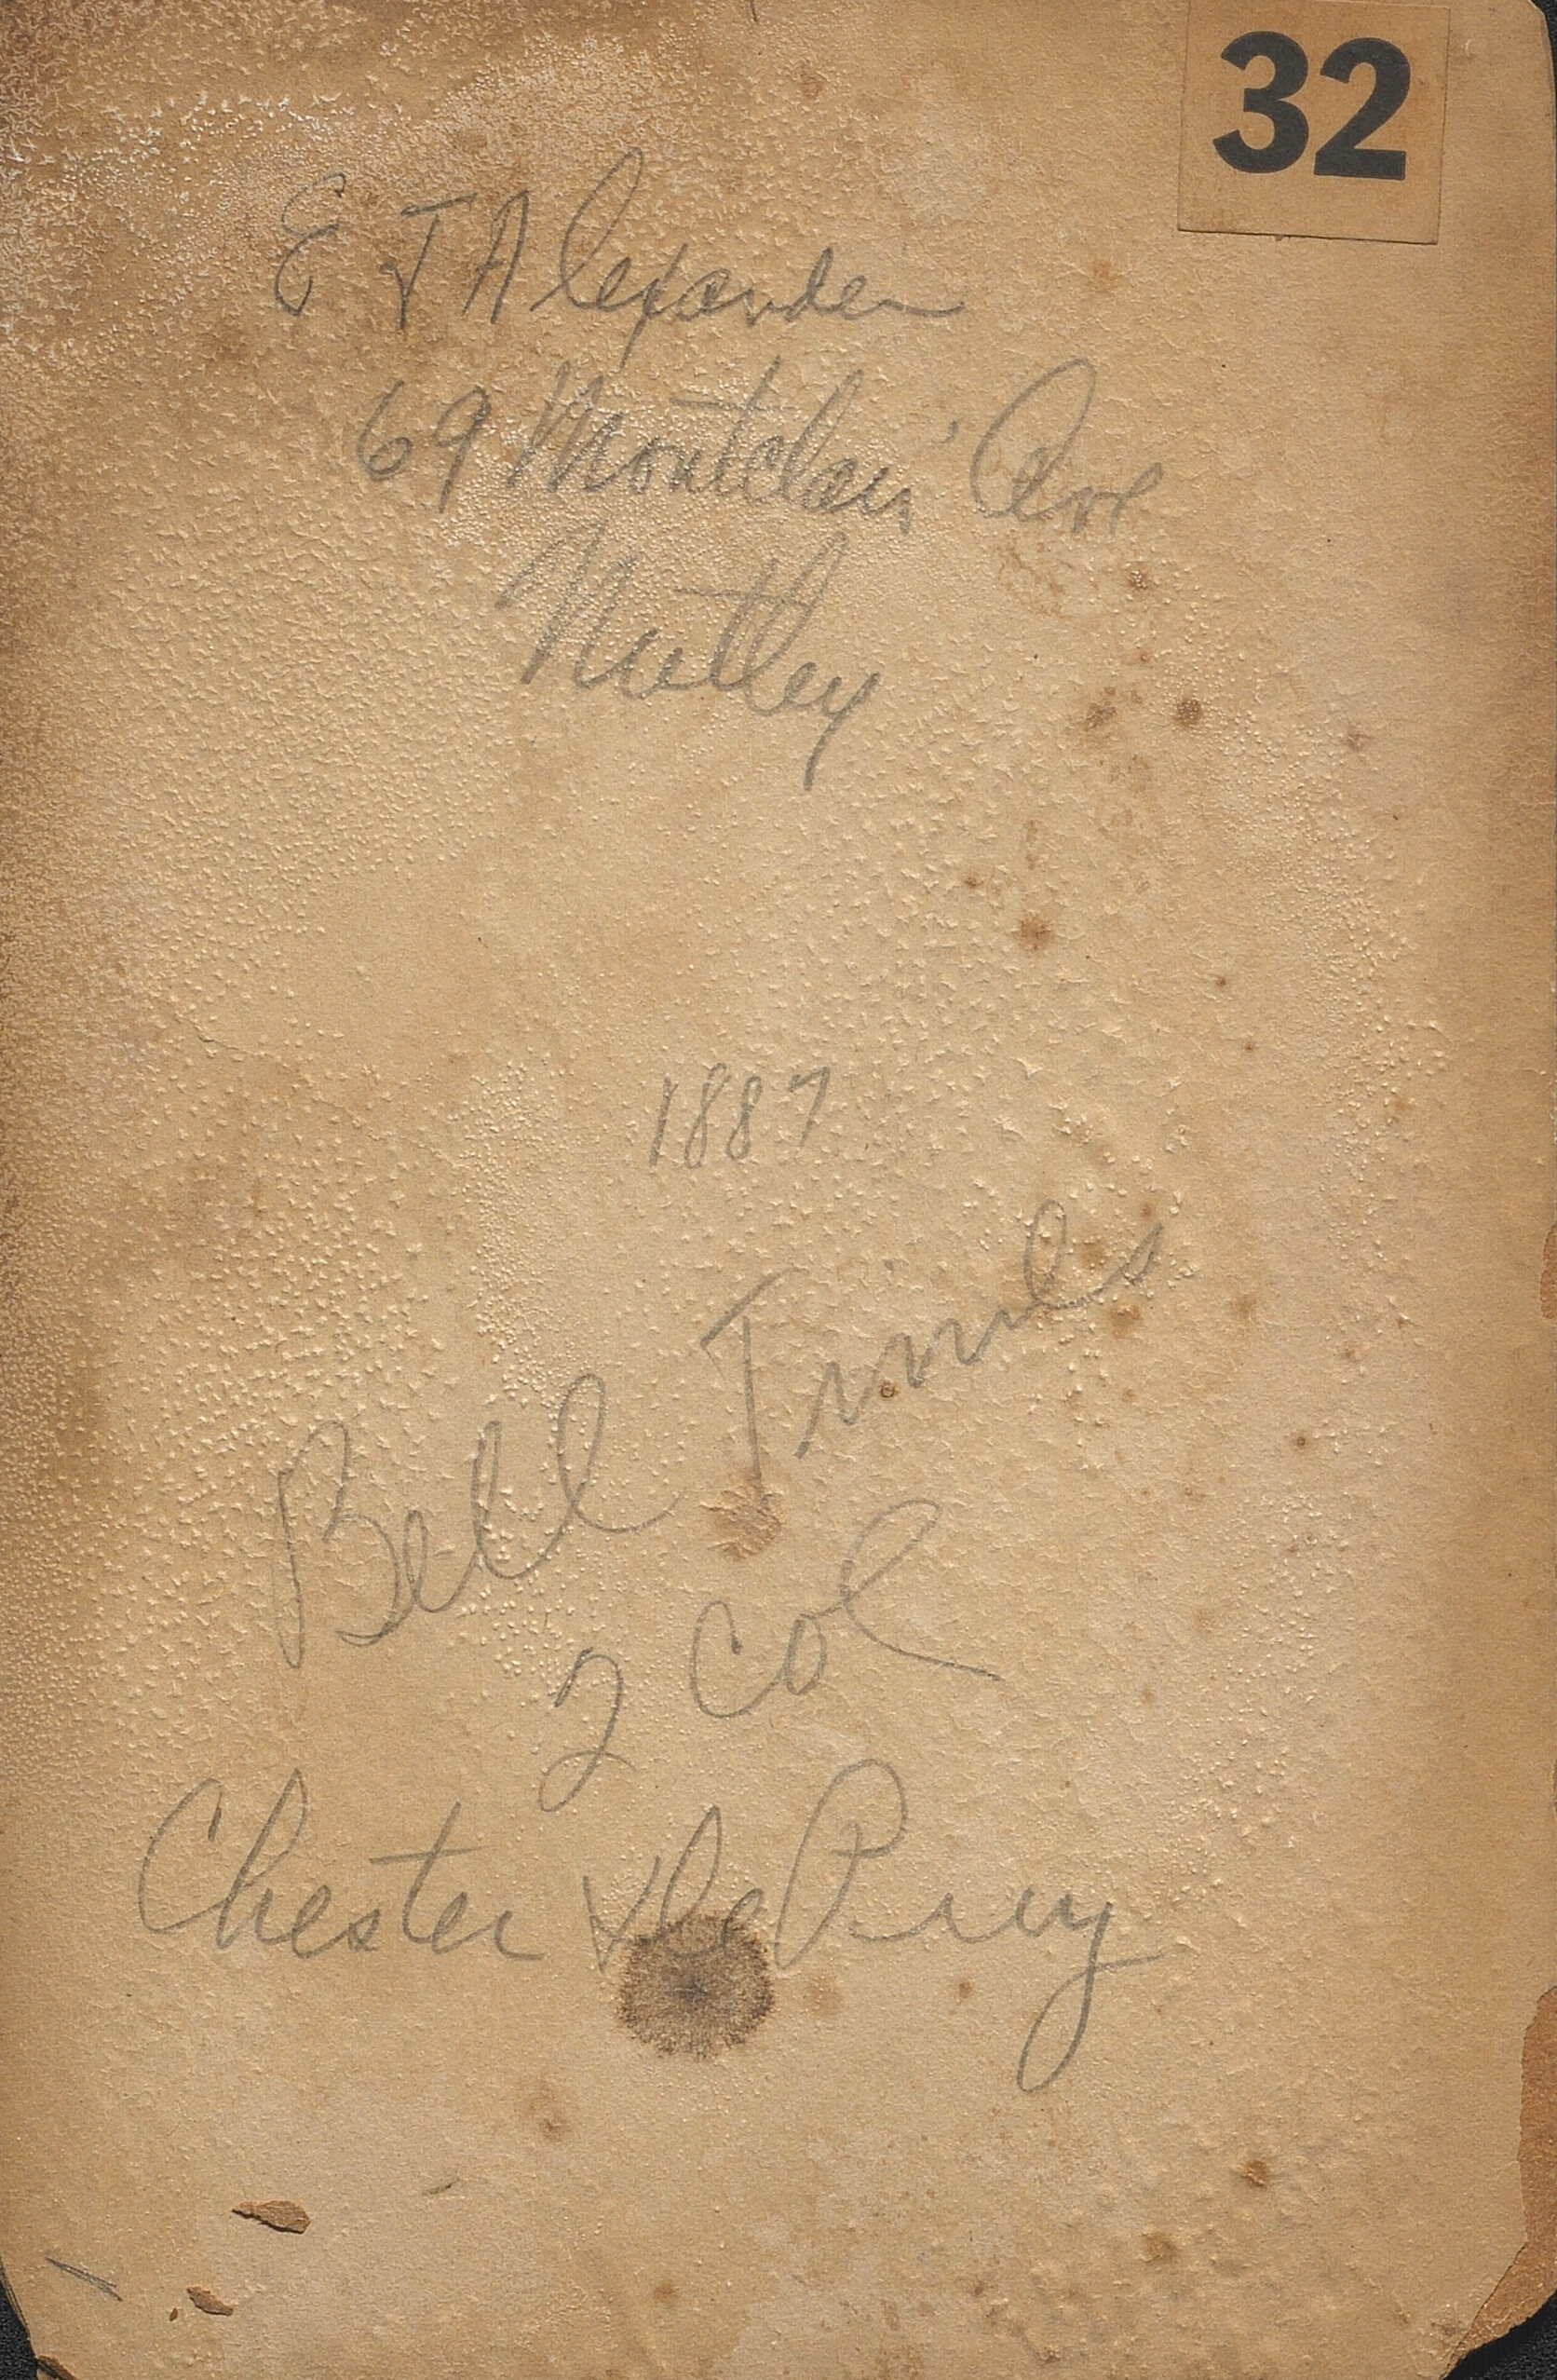 32
E J Alexander
69 Montclair Ave
Nutley
1887
Bell
2 Col
Chester